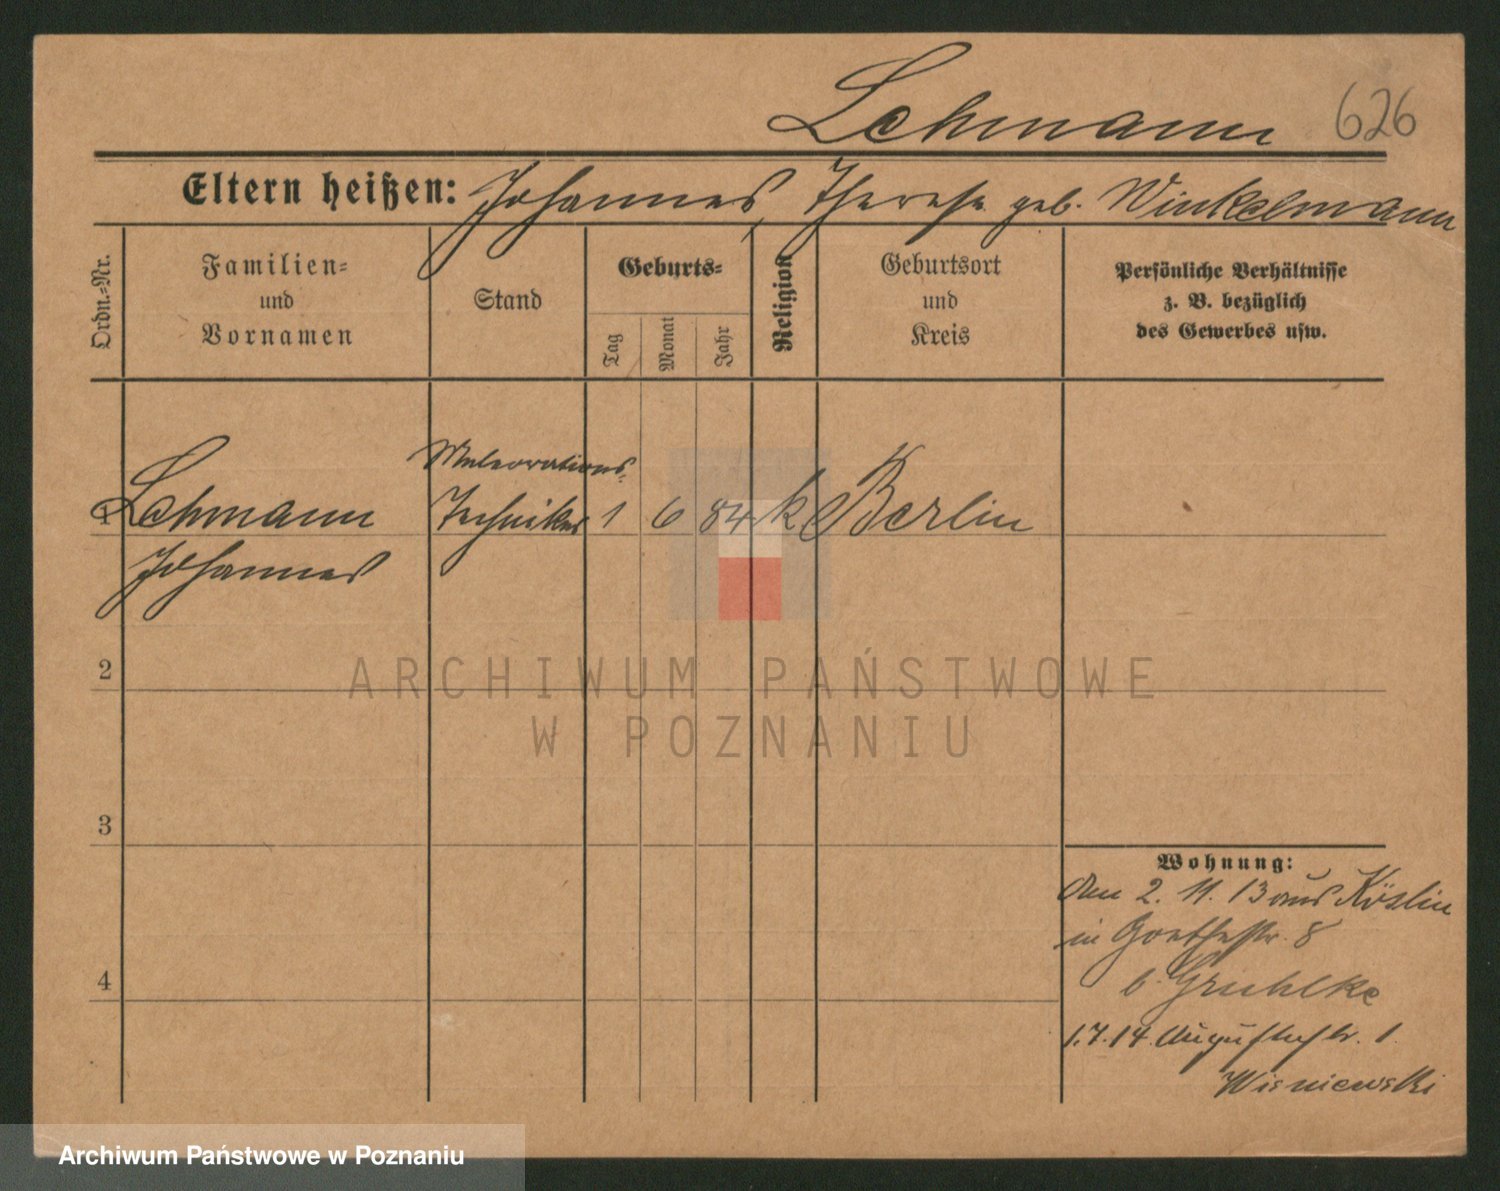 Lehmann 626
Eltern heißen: Johannes, Therese geb. Winkelmann
Ordn.-Nr.
Familien-
und
Vornamen
Stand
Geburts-
Tag
Monat
Jahr
Religion
Geburtsort
und
Kreis
Persönliche Verhältnisse
z. B. bezüglich
des Gewerbes usw.
Meliorations-
1 Lehmann Techniker 1 6 84 k Berlin
Johannes
2
3
4
Wohnung:
den 2. 11. 13 aus Köslin
in Goethestr. 8
b. Gruhlke
1.7.14. Augustastr. 1.
Wisniewski
ARCHIWUM PAŃSTWOWE
W POZNANIU
Archiwum Państwowe w Poznaniu